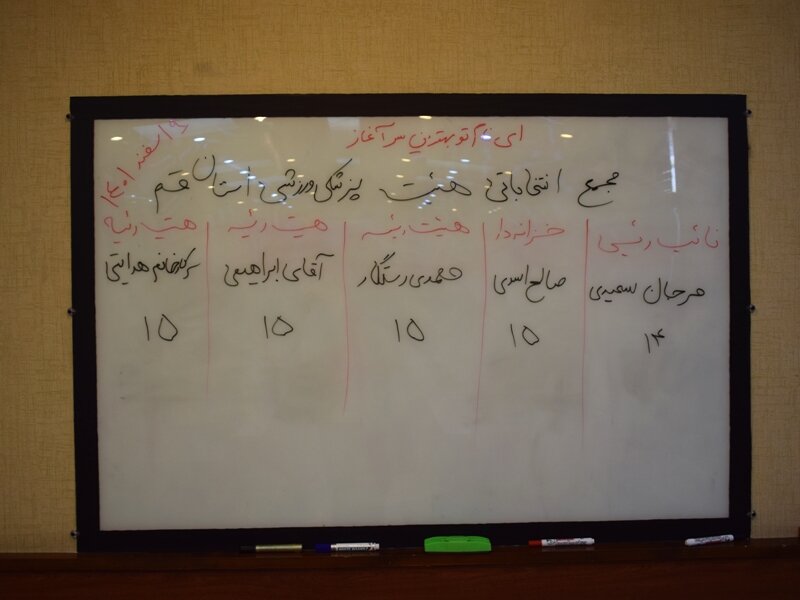 ای نام تو بهترین سرآغاز
۹ اسفند ۱۴۰۱
مجمع انتخاباتی هیئت پزشکی ورزشی استان قم
نائب رئیس خزانه دار هیئت رئیسه هیئت رئیسه هیئت رئیسه
مرجان سعیدی صالح اسدی محمدی رستگار آقای ابراهیمی سرکار خانم هدایتی
۱۴ ۱۵ ۱۵ ۱۵ ۱۵